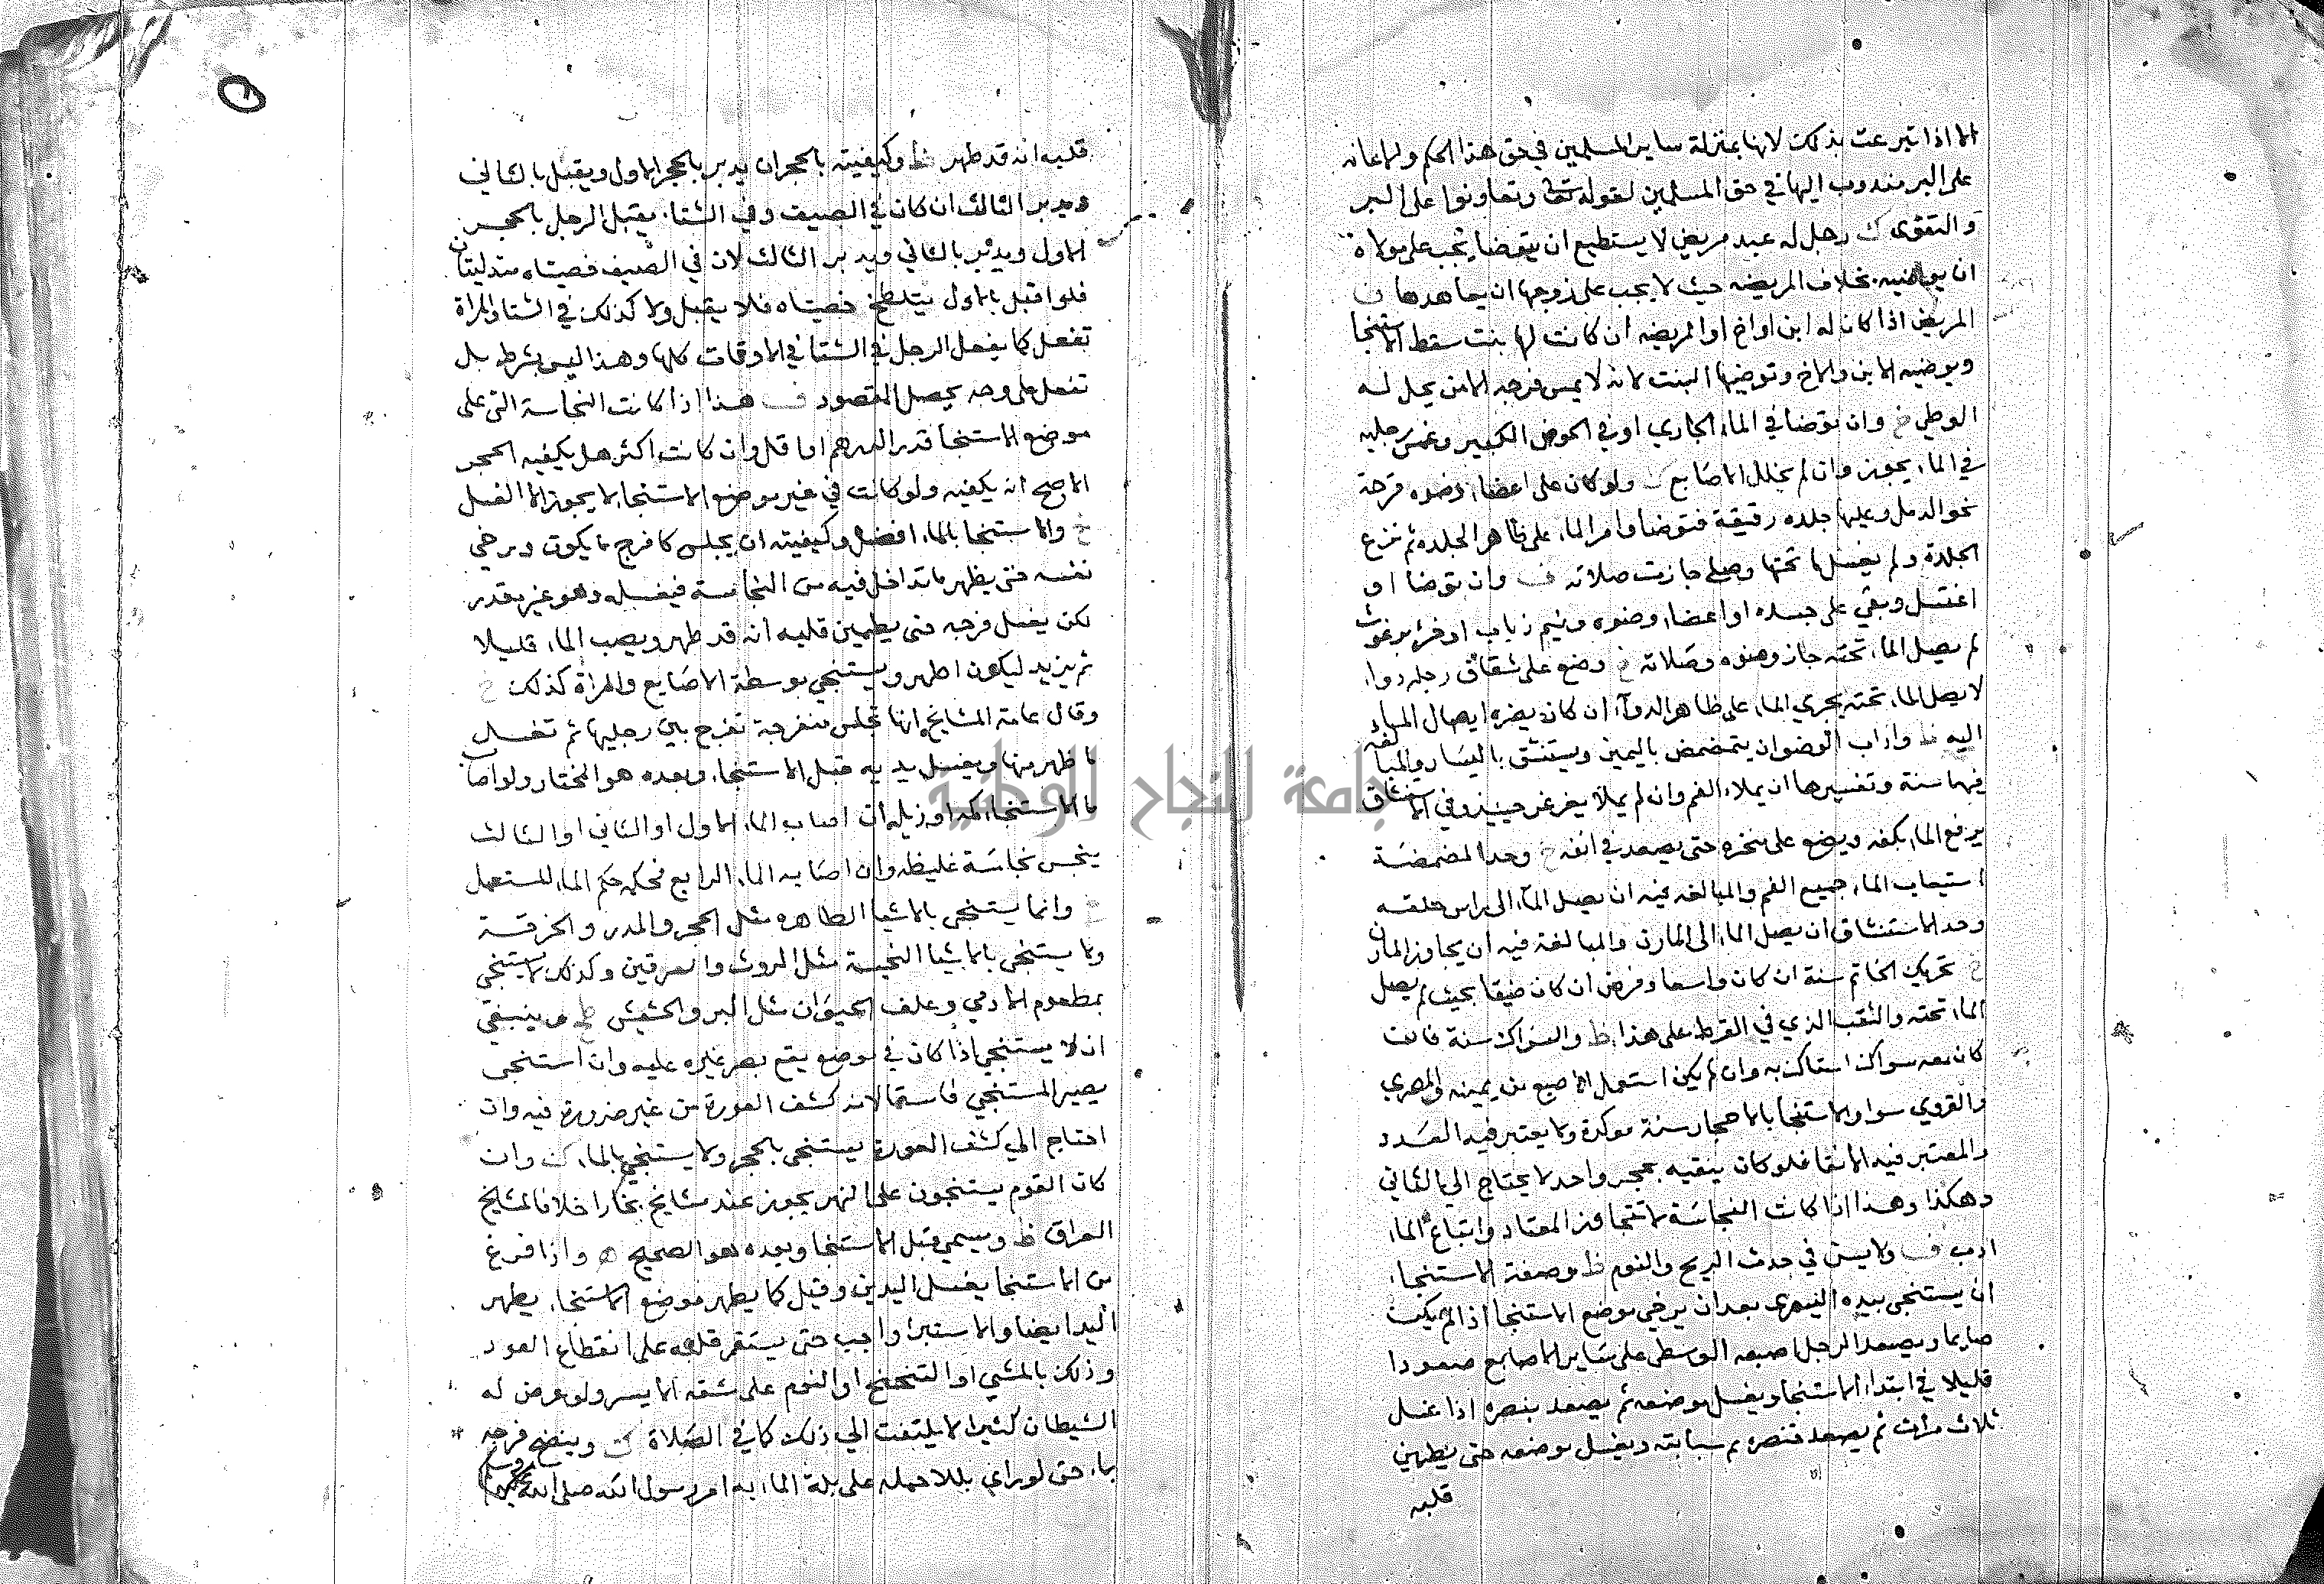 الا اذا تبرعت بذلك لانها بمنزلة ساير المسلمين في حق هذا الحكم والاعانه
على البر مندوب اليها في حق المسلمين لقوله تعا وتعاونوا على البر
والتقوى ك رجل له عبد مريض لا يستطيع ان يتوضا يجب على مولاه
ان يوضيه بخلاف المريضه حيث لا يجب على زوجها ان يتعاهدها ف
المريض اذا كان له ابن او اخ او المريضه ان كانت لها بنت سقط الاستنجا
ويوضيه الابن والاخ وتوضيها البنت لانه لا يمس فرجه الا من يحل له
الوطي خ وان توضا في الماء الجاري او في الحوض الكبير وغمس رجليه
في الماء يجوز وان لم يخلل الاصابع ك ولو كان على اعضاء وضوه قرحة
نحو الدمل وعليها جلده رقيقة فتوضا وامر الماء على ظاهر الجلده ثم نزع
الجلدة ولم يغسل ما تحتها وصلى جازت صلاته ف وان توضا او
اغتسل وبقي على جسده او اعضاء وضوه ونيم ذباب او خرء برغوث
لم يصل الماء تحته جاز وضوه وصلاته خ وضع على شقاق رجله دواء
لا يصل الماء تحته يجري الماء على ظاهر الدوآء ان كان يضره ايصال الماء
اليه ظ واداب الوضو ان يتمضمض باليمين ويستنشق باليسار والمبالغه
فيهما سنة وتفسيرها ان يملاء الفم وان لم يملا يغرغر حينيذ وفي الاستنشاق
يرفع الماء بكفه ويضع على منخره حتى يصعد في انفه خ وحد المضمضة
استيعاب الماء جميع الفم والمبالغه فيه ان يصل المآء الى راس حلقه
وحد الاستنشاق ان يصل الماء الى المارن والمبالغة فيه ان يجاوز المارن
خ تحريك الخاتم سنة ان كان واسعا وفرض ان كان ضيقا بحيث لم يصل
الماء تحته والثقب الذي في القرط على هذا ظ والسواك سنة فان
كان معه سواك استاك به وان لم يكن استعمل الاصبع من يمينه والمصري
والقروي سواء والاستنجا بالاحجار سنة موكدة ولا يعتبر فيه العدد
والمعتبر فيه الانقا فلو كان ينقيه بحجر واحد لا يحتاج الى الثاني
وهكذا وهذا اذا كانت النجاسة لا تتجاوز المعتاد واتباع الماء
ادب ف ولا يسن في حدث الريح والنوم ظ وصفة الاستنجاء
ان يستنجي بيده اليسرى بعد ان يرخي موضع الاستنجا اذا لم يكن
صايما ويصعد الرجل اصبعه الوسطى على ساير الاصابع صعودا
قليلا في ابتداء الاستنجا ويغسل موضعه ثم يصعد بنصره اذا غسل
ثلاث مرات ثم يصعد خنصره ثم سبابته ويغسل موضعه حتى يطمئن
قلبه
قلبه انه قد طهر ظ وكيفيته بالحجر ان يدبر بالحجر الاول ويقبل بالثاني
ويدبر الثالث ان كان في الصيف وفي الشتاء يقبل الرجل بالحجر
الاول ويدبر بالثاني ويدبر الثالث لان في الصيف خصيتاه متدليتان
فلو اقبل بالاول يتلطخ خصيتاه فلا يقبل ولا كذلك في الشتا والمراة
تفعل كما يفعل الرجل في الشتا في الاوقات كلها وهذا ليس بشرط بل
تفعل على وجه يحصل المقصود ف هذا اذا كانت النجاسة التي على
موضع الاستنجا قدر الدرهم او اقل وان كانت اكثر هل يكفيه الحجر
الاصح انه يكفيه ولو كانت في غير موضع الاستنجا لا يجوز الا الغسل
خ والاستنجا بالماء افضل وكيفيته ان يجلس كافرج ما يكون ويرخي
نفسه حتى يظهر ما تداخل فيه من النجاسة فيغسله وهو غير مقدر
لكن يغسل فرجه حتى يطمين قلبه انه قد طهر ويصب الماء قليلا
ثم يزيد ليكون اطهر ويستنجي بوسطة الاصابع والمراة كذلك خ
وقال عامة المشايخ انها تجلس منفرجة تفرج بين رجليها ثم تغسل
ما ظهر منها ويغسل يديه قبل الاستنجا وبعده هو المختار ولو اصاب
ما الاستنجا كمه او ذيله ان اصاب الماء الاول او الثاني او الثالث
ينجس نجاسة غليظه وان اصابه الماء الرابع فحكمه حكم الماء المستعمل
خ وانما يستنجي بالاشيا الطاهره مثل الحجر والمدر والخرقة
ولا يستنجي بالاشيا النجسة مثل الروث والسرقين وكذلك لا يستنجي
بمطعوم الادمي وعلف الحيوان مثل البر والحشيش ظ وينبغي
ان لا يستنجي اذا كان في موضع يقع بصر غيره عليه وان استنجى
يصير المستنجي فاسقا لانه كشف العورة من غير ضرورة فيه وان
احتاج الى كشف العورة يستنجي بالحجر ولا يستنجي بالماء ك وان
كان القوم يستنجون على النهر يجوز عند مشايخ بخارا خلافا لمشايخ
العراق ظ ويسمي قبل الاستنجا وبعده هو الصحيح ه واذا فرغ
من الاستنجا يغسل اليدين وقيل كما يطهر موضع الاستنجاء يطهر
اليد ايضا والاستبرء واجب حتى يستقر قلبه على انقطاع العود
وذلك بالمشي او التنحنح او النوم على شقه الايسر ولو عرض له
الشيطان كثيرا لا يلتفت الى ذلك كما في الصلاة ك وينضح فرجه
بماء حتى لو راى بللا حمله على بلة الماء به امر رسول الله صلى الله عليه وسلم
جامعة النجاح الوطنية